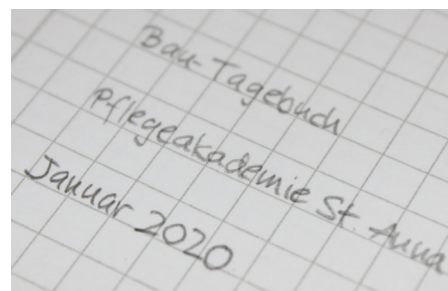 Bau-Tagebuch
Pflegeakademie St. Anna
Januar 2020